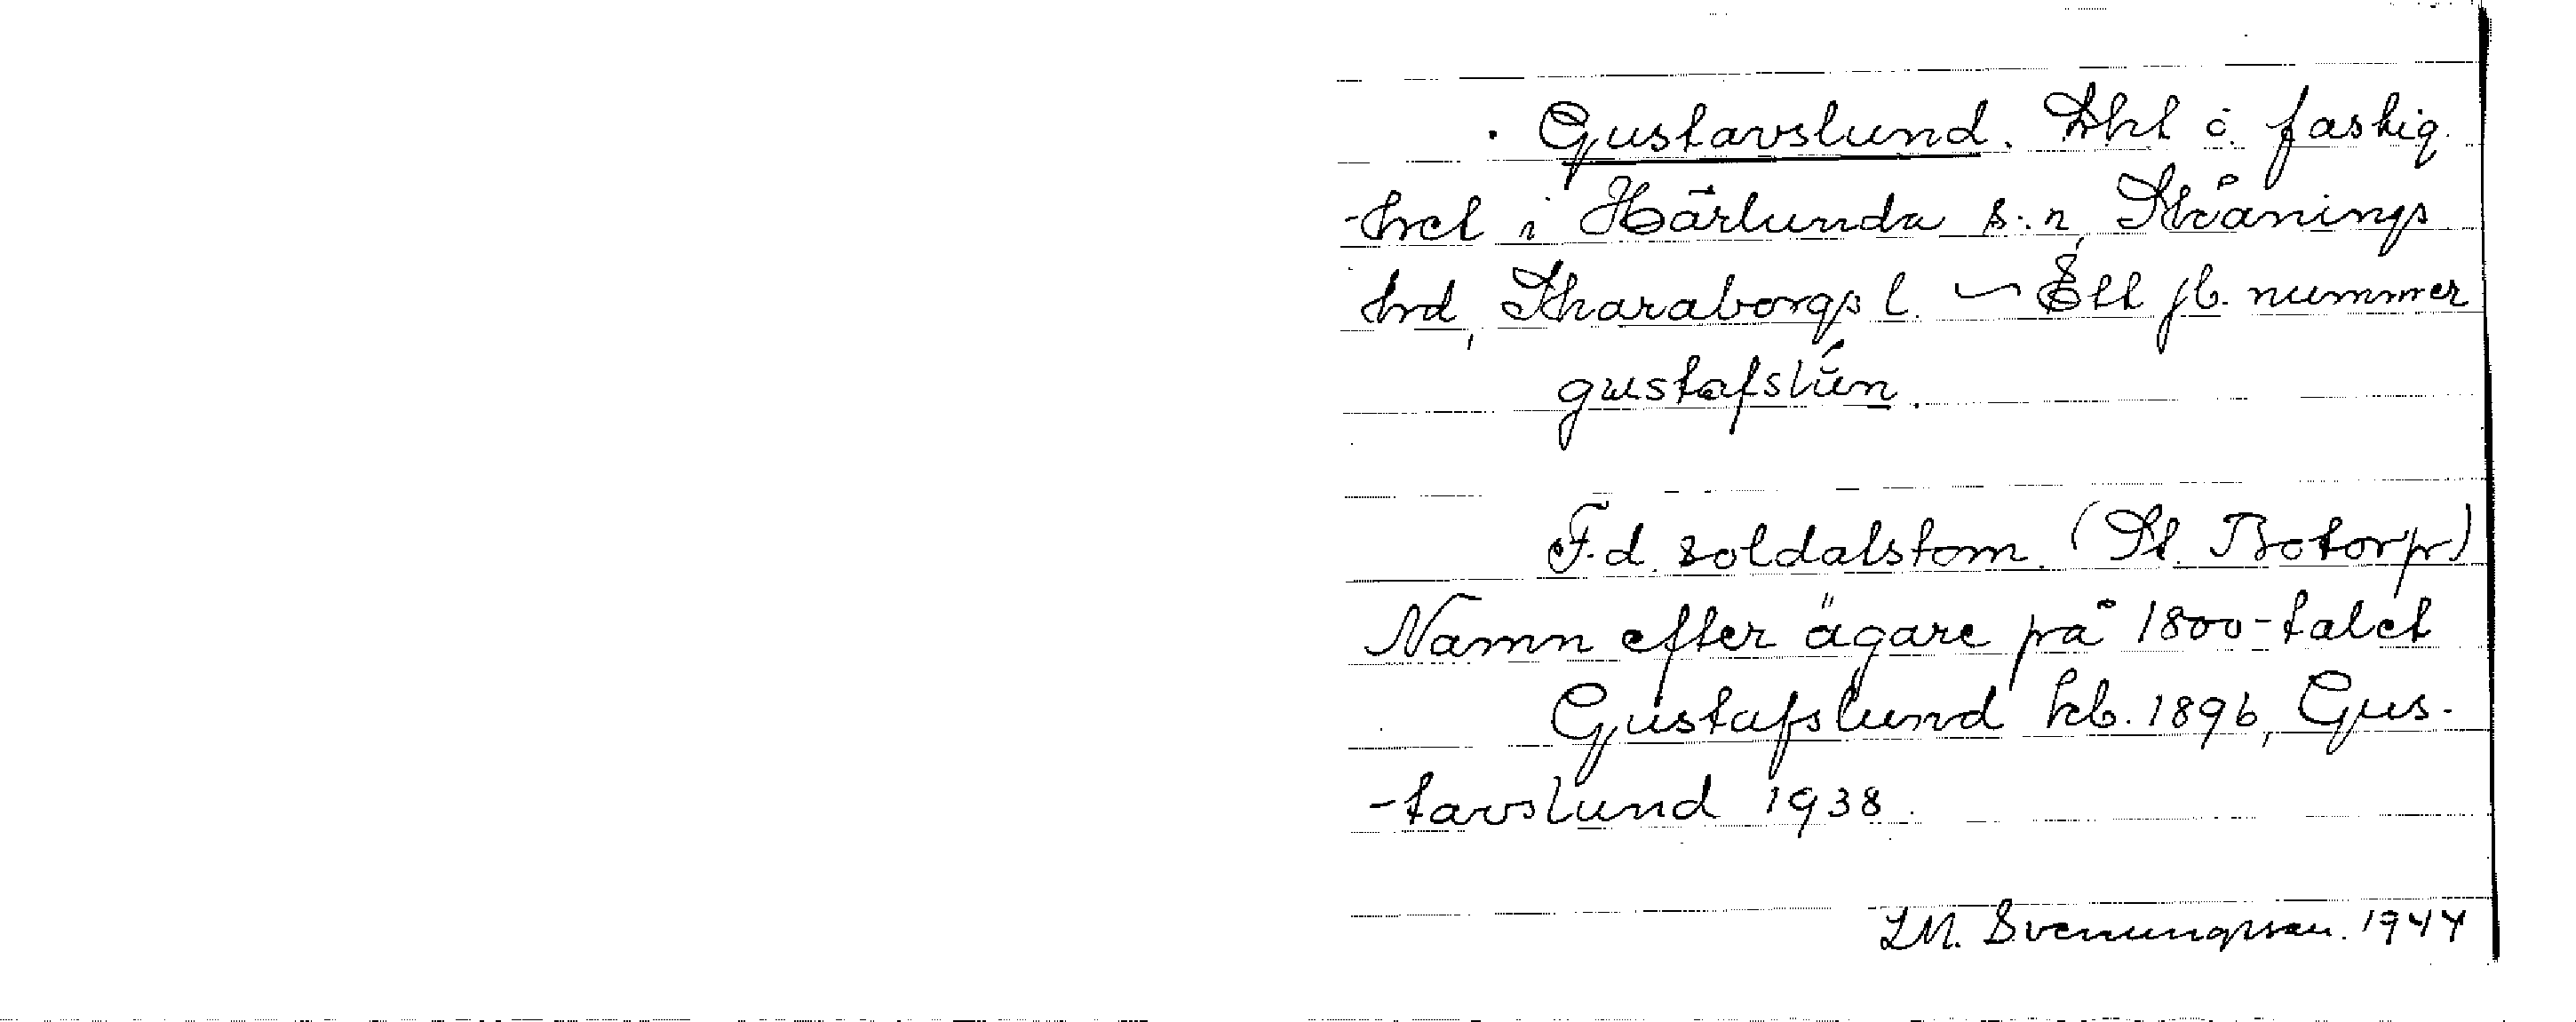 · Gustavslund. Lht o. fastig.
-het i Härlunda s:n, Skånings
hrd, Skaraborgs l. ~ Ett jb. nummer
gustafslún.
F.d. soldatstom. (St. Botorp)
Namn efter ägare på 1800-talet
Gustafslund kb. 1896, Gus-
-tavslund 1938.
L.M. Svenungsson. 1944